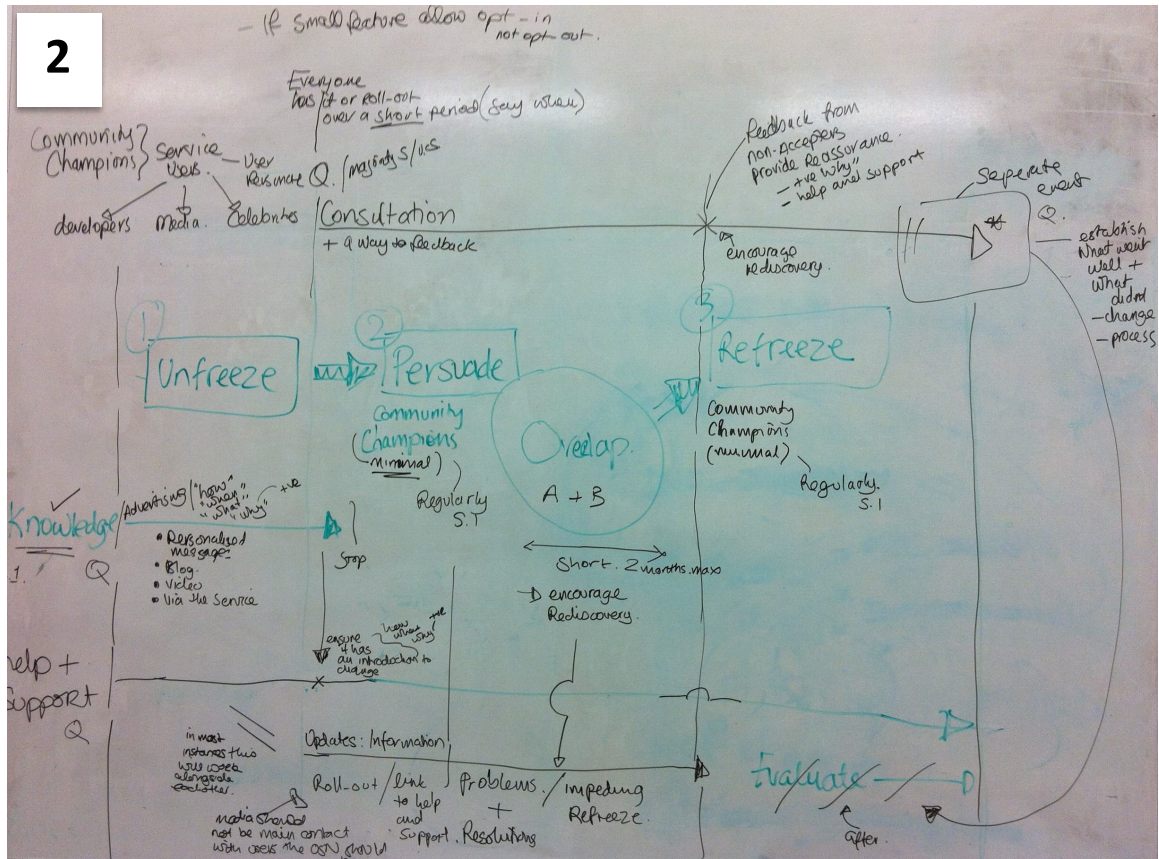 2
- If small feature allow opt-in
not opt out.
Everyone
has it or Roll-out
over a short period (say when)
Community
Champions
Service
Users
User
Q.
developers
Media.
Celebrities
Consultation
+ a way to feedback
Feedback from
non-Accepters
provide Reassurance.
- +ve "why"
- help and support
encourage
rediscovery.
Seperate
event
Q.
establish
What went
well +
what
didnt
- change
- process
1.
Unfreeze
2
Persuade
3.
Refreeze
Community
Champions
(minimal)
Regularly
S.T
Overlap.
A + B
Community
Champions
(minimal)
Regularly.
short. 2 months. max
encourage
Rediscovery.
Knowledge
1.
Q
Advertising / "how"
"when"
"what"
"why"
+ve
• Personalised
messages
• Blog.
• Video
• Via the Service
Stop
ensure
it has
an introduction to
change
how
what
why
+ve
elp +
upport
Q
in most
instances this
will work
alongside
eachother.
Updates: Information
Roll-out / link
to help
and
support.
Problems
+
Resolutions
/ impeding
Refreeze.
media should
not be main contact
with users the OSN should
Evaluate
after.